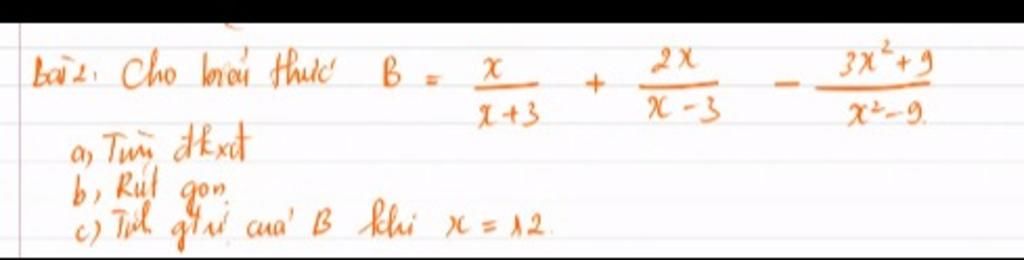 bài 2. Cho biểu thức B = x/(x+3) + 2x/(x-3) - (3x²+9)/(x²-9).
a, Tìm đkxđ
b, Rút gọn.
c) Tính gtrị của B khi x = 12.